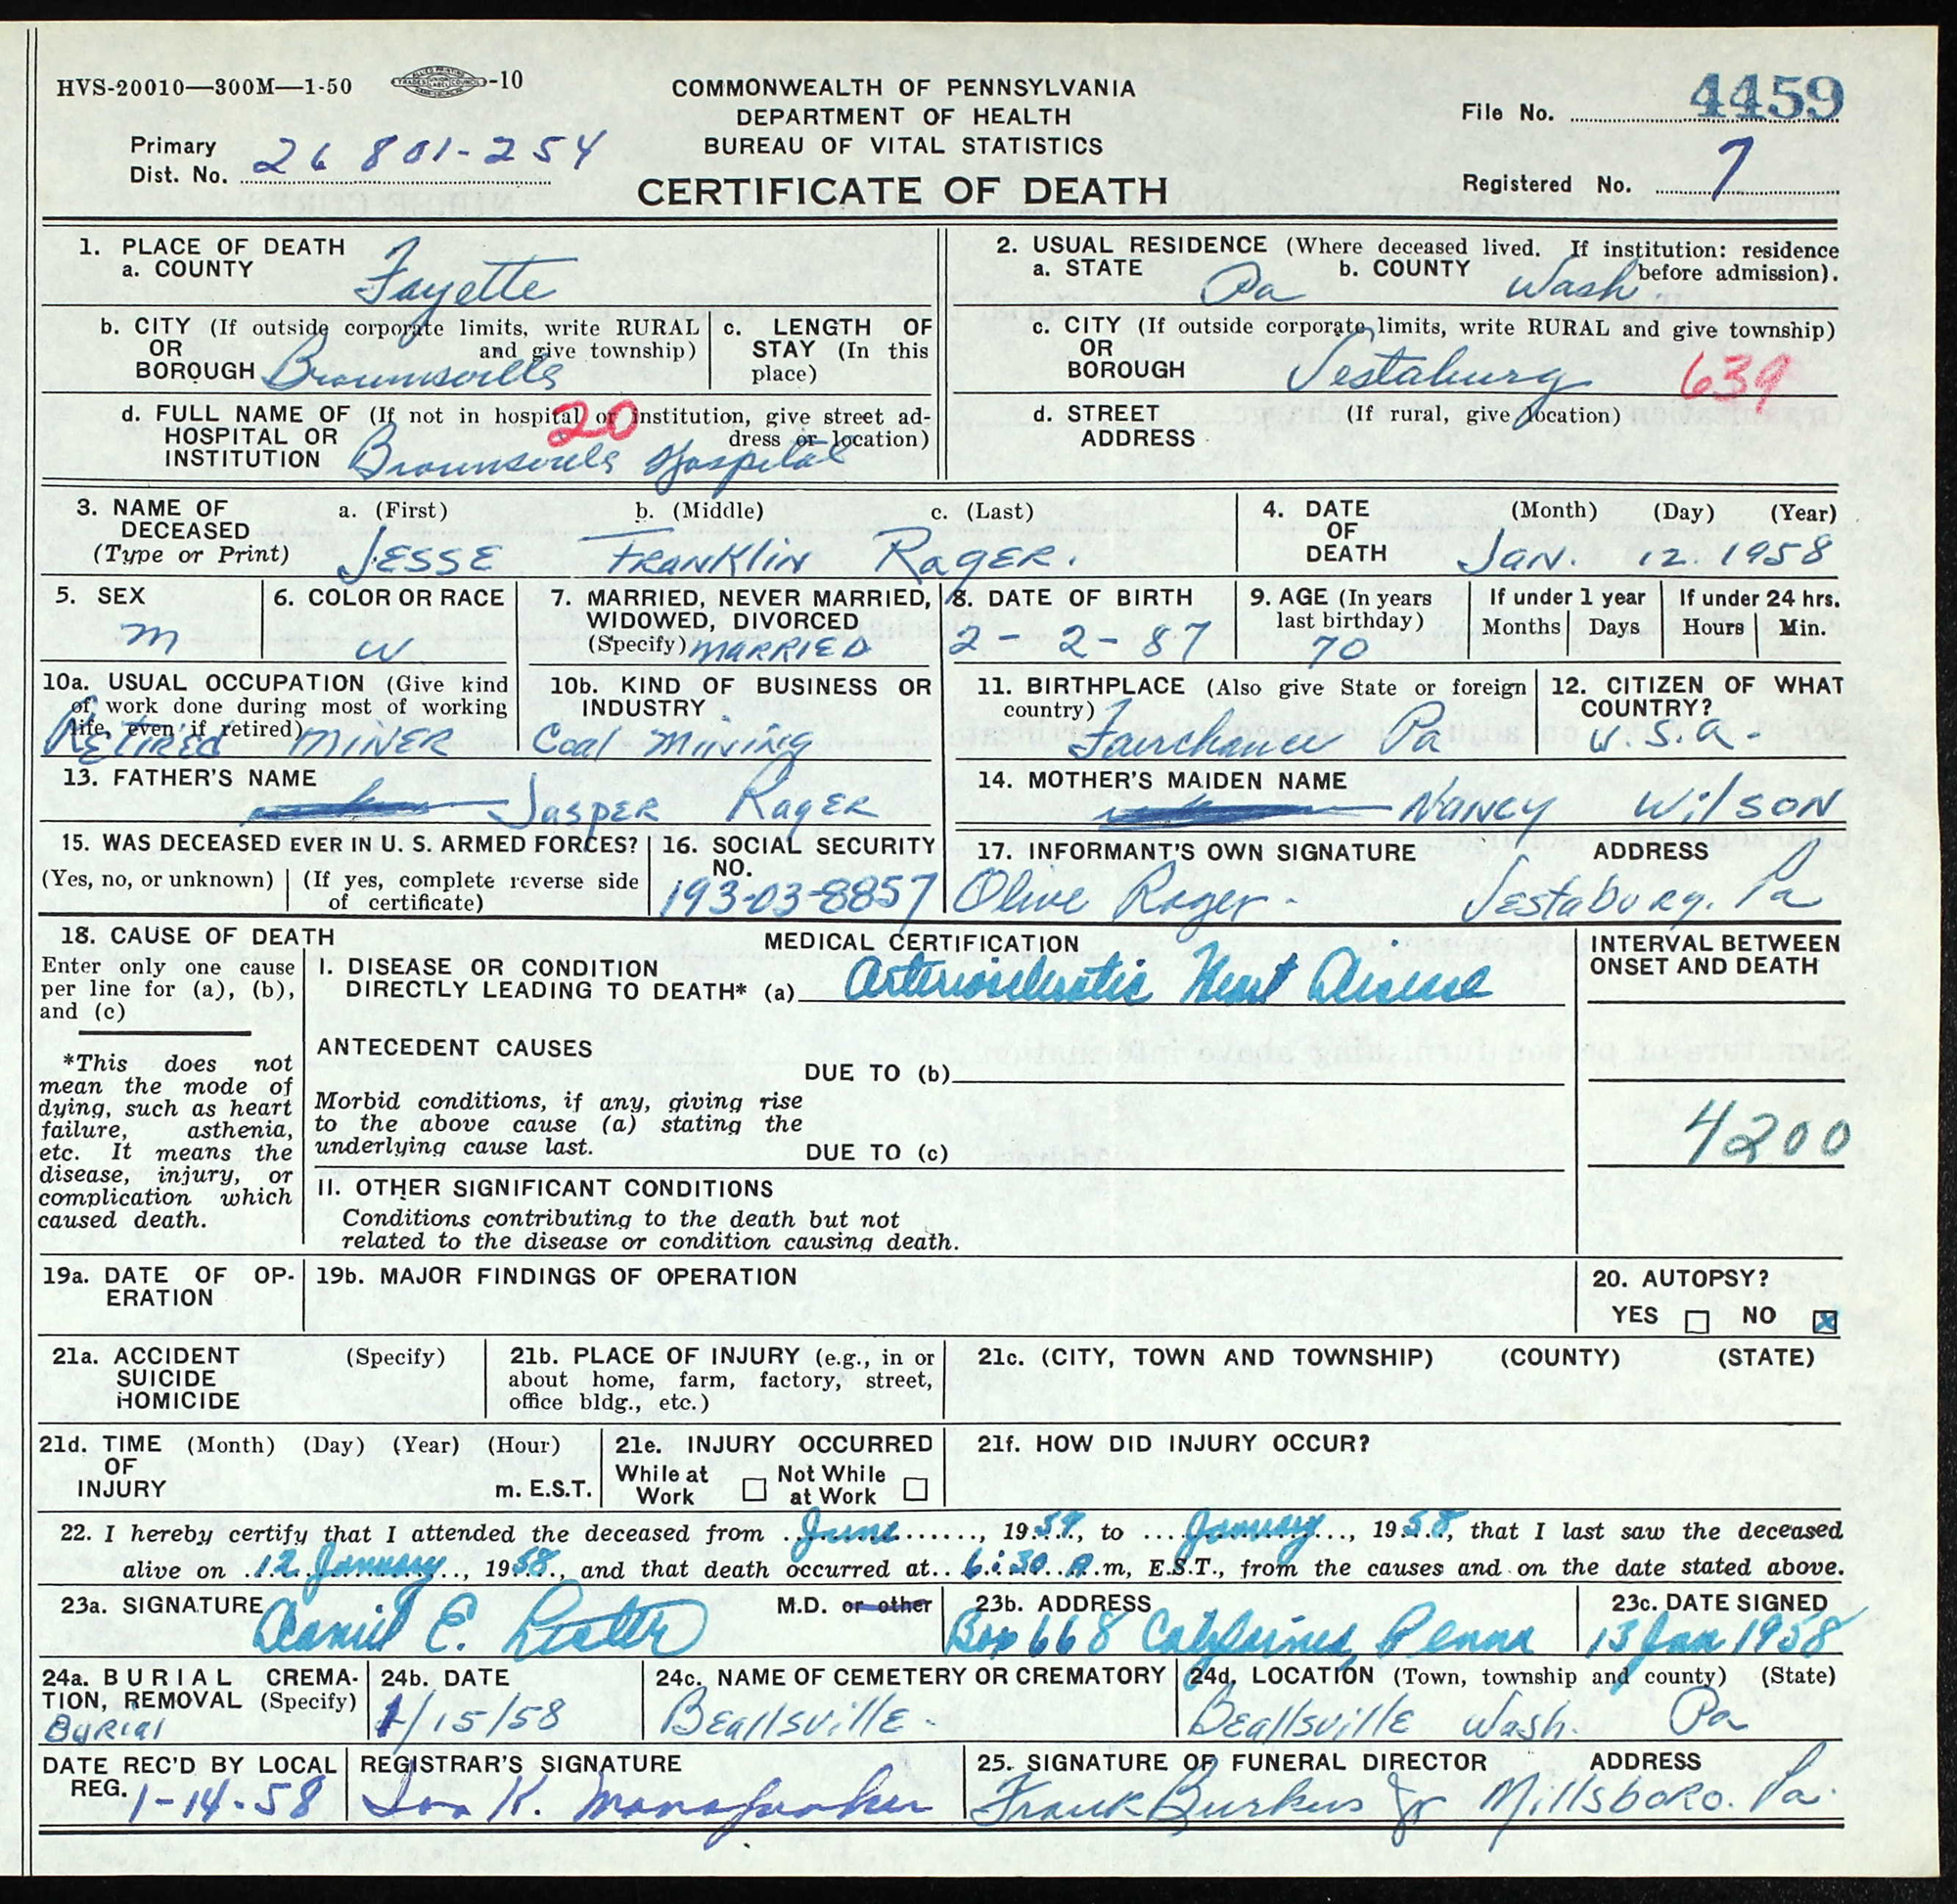 HVS-20010—300M—1-50 -10
COMMONWEALTH OF PENNSYLVANIA
DEPARTMENT OF HEALTH
BUREAU OF VITAL STATISTICS
CERTIFICATE OF DEATH
File No. 4459
Primary Dist. No. 26 801-254
Registered No. 7
1. PLACE OF DEATH
a. COUNTY Fayette
2. USUAL RESIDENCE (Where deceased lived. If institution: residence before admission).
a. STATE Pa b. COUNTY Wash
b. CITY (If outside corporate limits, write RURAL and give township)
OR
BOROUGH Brownsville
c. LENGTH OF STAY (In this place)
c. CITY (If outside corporate limits, write RURAL and give township)
OR
BOROUGH Vestaburg 639
d. FULL NAME OF (If not in hospital or institution, give street address or location)
HOSPITAL OR
INSTITUTION Brownsville Hospital
20
d. STREET ADDRESS (If rural, give location)
3. NAME OF DECEASED (Type or Print)
a. (First) b. (Middle) c. (Last)
JESSE FRANKLIN RAGER.
4. DATE OF DEATH (Month) (Day) (Year)
JAN. 12. 1958
5. SEX
M
6. COLOR OR RACE
W
7. MARRIED, NEVER MARRIED, WIDOWED, DIVORCED (Specify) MARRIED
8. DATE OF BIRTH
2-2-87
9. AGE (In years last birthday)
70
If under 1 year
Months Days
If under 24 hrs.
Hours Min.
10a. USUAL OCCUPATION (Give kind of work done during most of working life, even if retired)
RETIRED MINER
10b. KIND OF BUSINESS OR INDUSTRY
Coal Mining
11. BIRTHPLACE (Also give State or foreign country)
Fairchance Pa
12. CITIZEN OF WHAT COUNTRY?
U.S.A.
13. FATHER'S NAME
JASPER RAGER
14. MOTHER'S MAIDEN NAME
NANCY WILSON
15. WAS DECEASED EVER IN U. S. ARMED FORCES?
(Yes, no, or unknown) (If yes, complete reverse side of certificate)
16. SOCIAL SECURITY NO.
193-03-8857
17. INFORMANT'S OWN SIGNATURE ADDRESS
Olive Rager. Vestaburg. Pa
18. CAUSE OF DEATH
Enter only one cause per line for (a), (b), and (c)
*This does not mean the mode of dying, such as heart failure, asthenia, etc. It means the disease, injury, or complication which caused death.
MEDICAL CERTIFICATION
I. DISEASE OR CONDITION
DIRECTLY LEADING TO DEATH* (a) Arteriosclerotic Heart Disease
INTERVAL BETWEEN ONSET AND DEATH
ANTECEDENT CAUSES
DUE TO (b)
Morbid conditions, if any, giving rise to the above cause (a) stating the underlying cause last.
DUE TO (c)
4200
II. OTHER SIGNIFICANT CONDITIONS
Conditions contributing to the death but not related to the disease or condition causing death.
19a. DATE OF OPERATION
19b. MAJOR FINDINGS OF OPERATION
20. AUTOPSY?
YES NO X
21a. ACCIDENT SUICIDE HOMICIDE (Specify)
21b. PLACE OF INJURY (e.g., in or about home, farm, factory, street, office bldg., etc.)
21c. (CITY, TOWN AND TOWNSHIP) (COUNTY) (STATE)
21d. TIME OF INJURY (Month) (Day) (Year) (Hour) m. E.S.T.
21e. INJURY OCCURRED
While at Work Not While at Work
21f. HOW DID INJURY OCCUR?
22. I hereby certify that I attended the deceased from June, 19, to January, 1958, that I last saw the deceased
alive on 12 January, 1958, and that death occurred at 6:30 A.m, E.S.T., from the causes and on the date stated above.
23a. SIGNATURE M.D. or other
Daniel E.
23b. ADDRESS
Box 668 Penna
23c. DATE SIGNED
13 Jan 1958
24a. BURIAL CREMATION, REMOVAL (Specify)
BURIAL
24b. DATE
1/15/58
24c. NAME OF CEMETERY OR CREMATORY
BEALLSVILLE.
24d. LOCATION (Town, township and county) (State)
BEALLSVILLE Wash. Pa
DATE REC'D BY LOCAL REG.
1-14-58
REGISTRAR'S SIGNATURE
K.
25. SIGNATURE OF FUNERAL DIRECTOR ADDRESS
Frank Burkus Jr Millsboro. Pa.